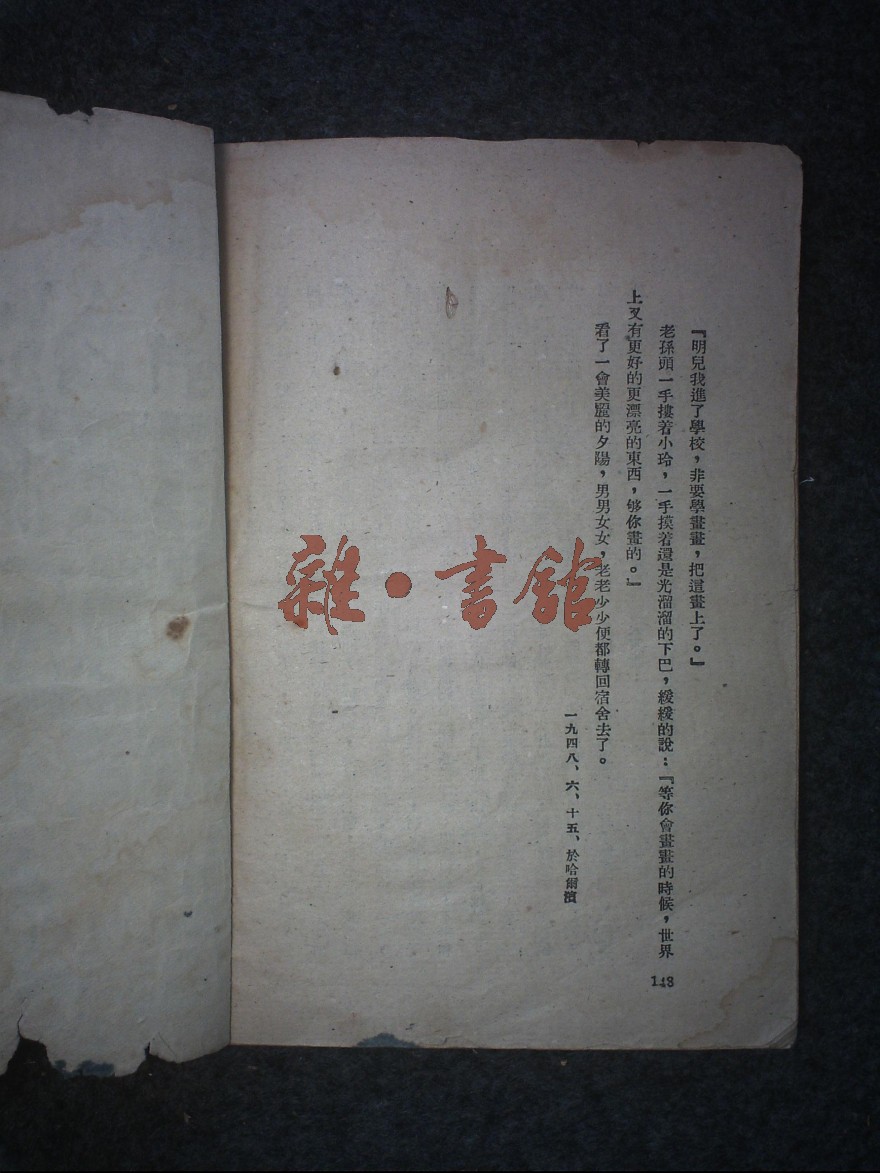 『明兒我進了學校，非要學畫畫，把這畫上了。』
老孫頭一手摟着小玲，一手摸着還是光溜溜的下巴，緩緩的說：『等你會畫畫的時候，世界
上又有更好的更漂亮的東西，够你畫的。』
看了一會美麗的夕陽，男男女女，老老少少便都轉回宿舍去了。
一九四八、六、十五、於哈爾濱
143
雜·書館